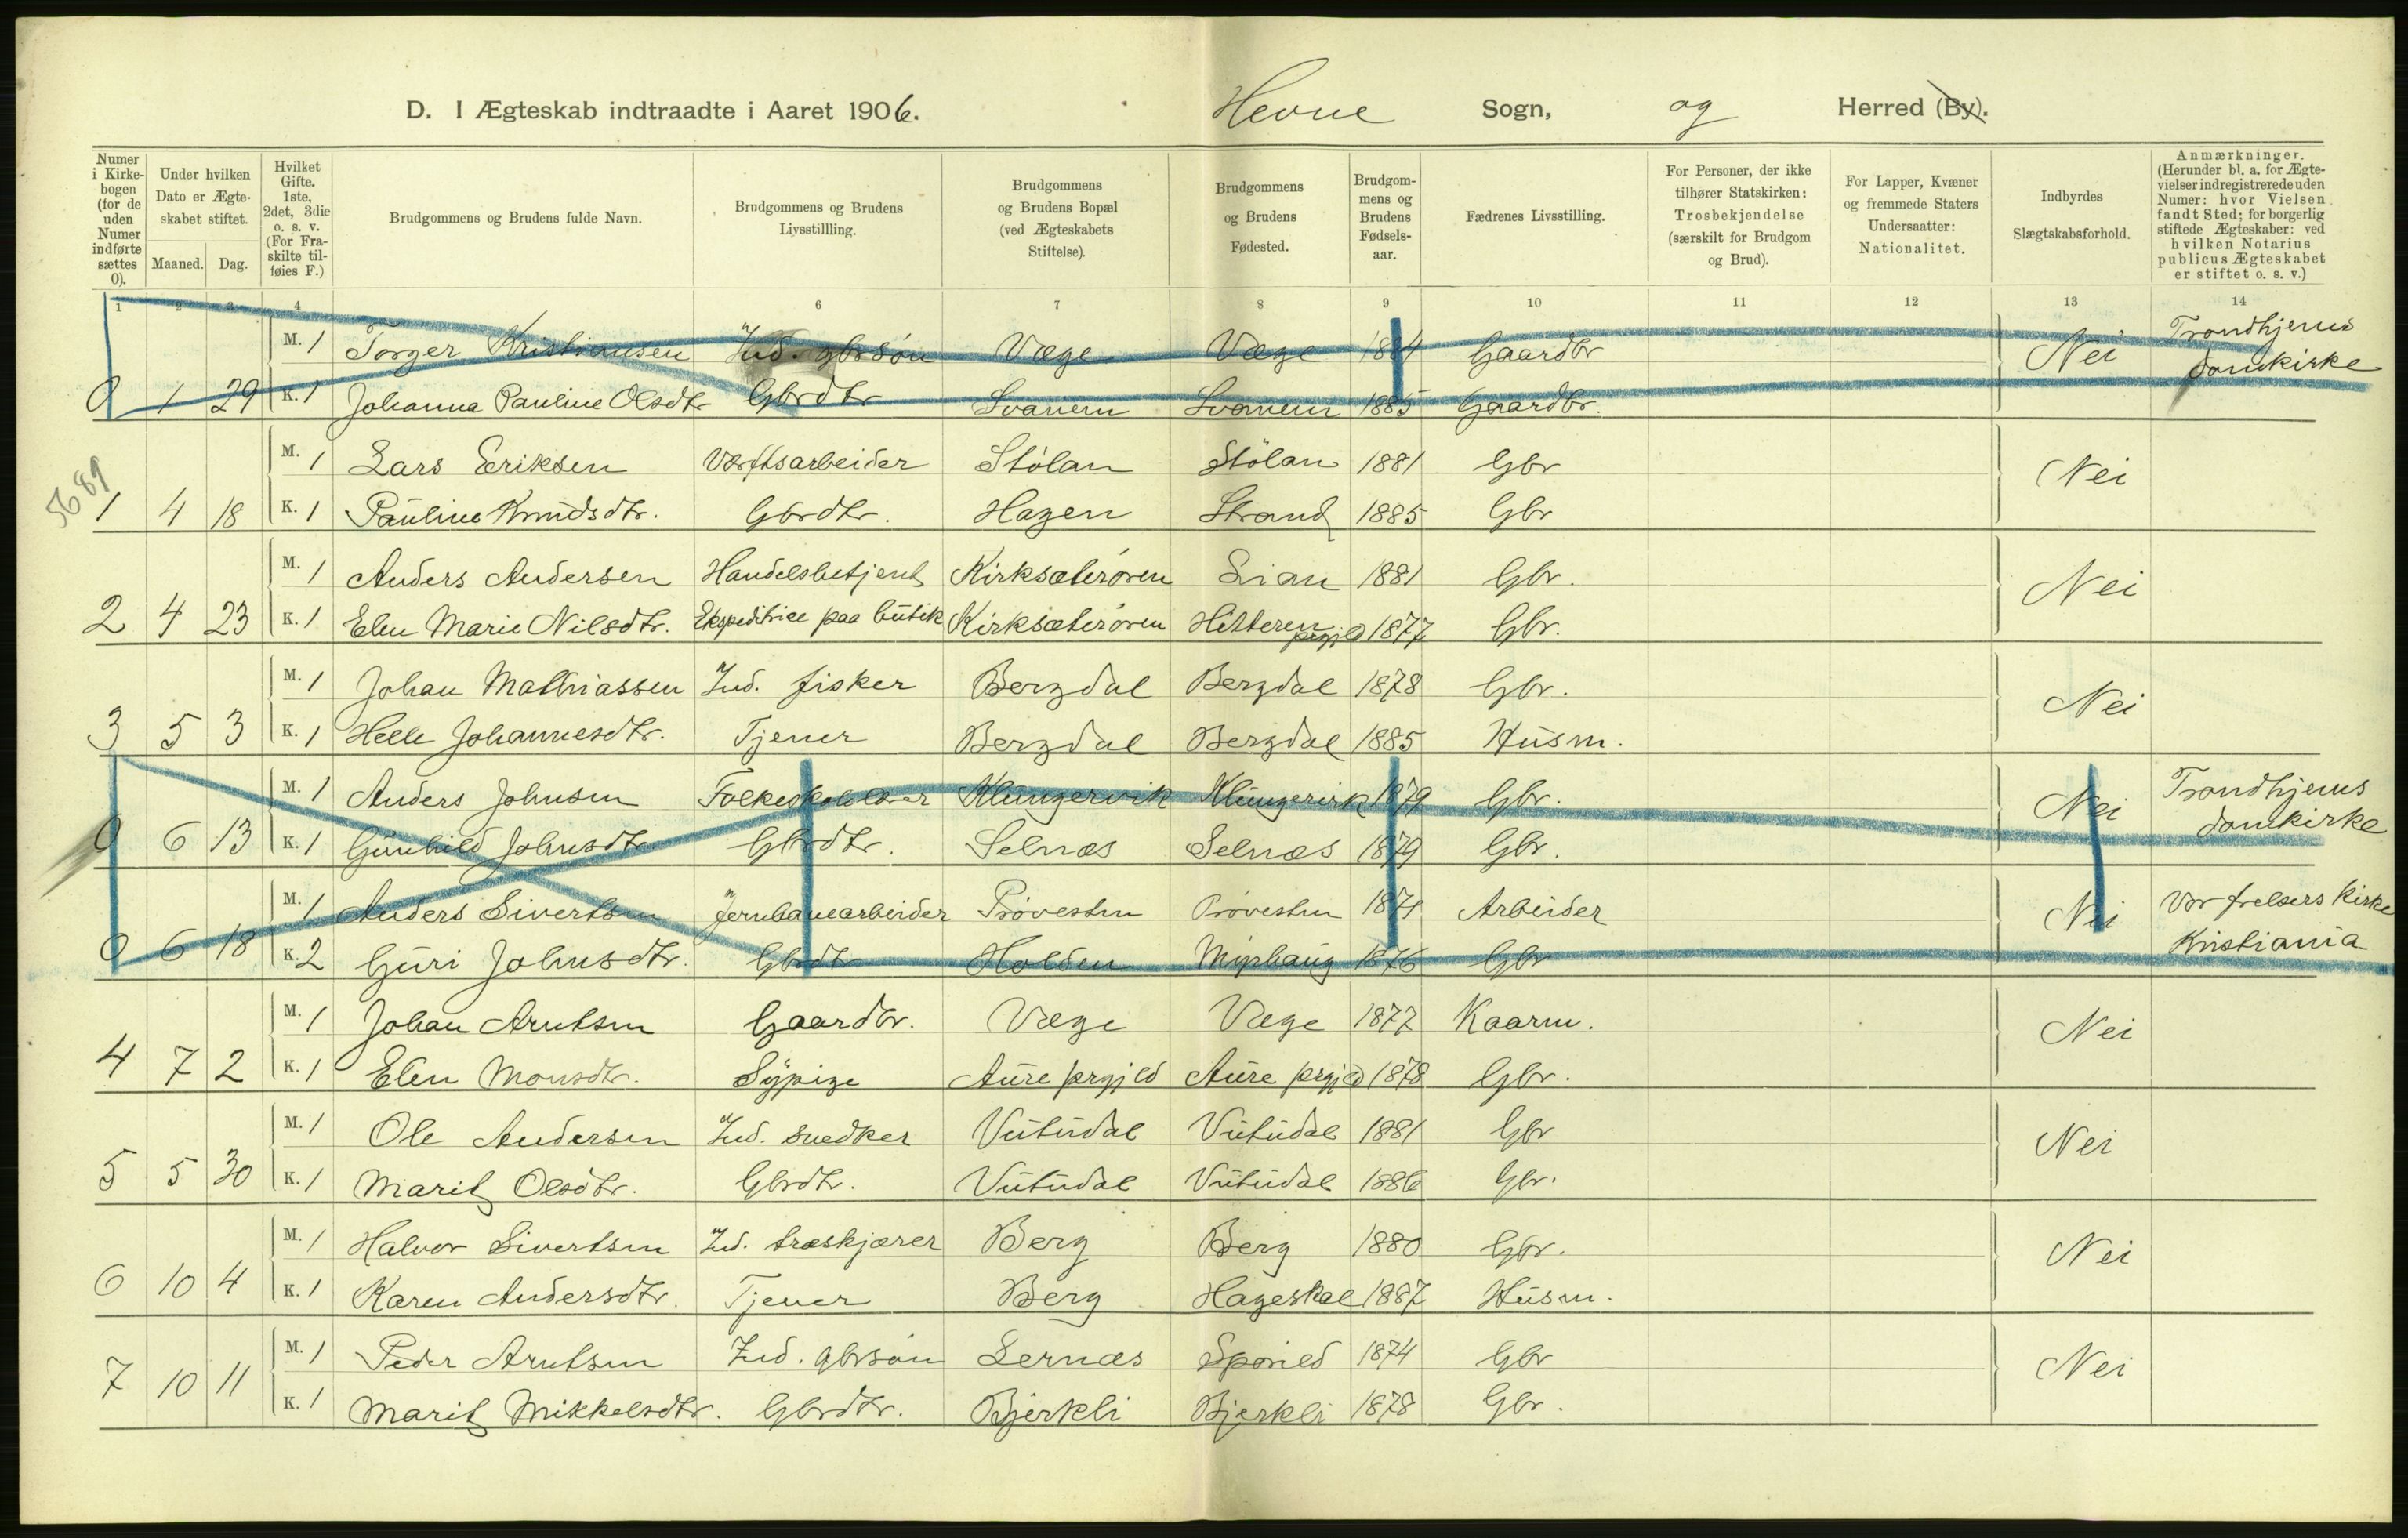 D. I Ægteskab indtraadte i Aaret 1906. Hevne Sogn, og Herred (By).
Numer i Kirke-bogen (for de uden Numer indførte sættes 0). | Under hvilken Dato er Ægte-skabet stiftet. Maaned. Dag. | Hvilket Gifte. 1ste, 2det, 3die o. s. v. (For Fra-skilte til-føies F.) | Brudgommens og Brudens fulde Navn. | Brudgommens og Brudens Livsstillling. | Brudgommens og Brudens Bopæl (ved Ægteskabets Stiftelse). | Brudgommens og Brudens Fødested. | Brudgom-mens og Brudens Fødsels-aar. | Fædrenes Livsstilling. | For Personer, der ikke tilhører Statskirken: Trosbekjendelse (særskilt for Brudgom og Brud). | For Lapper, Kvæner og fremmede Staters Undersaatter: Nationalitet. | Indbyrdes Slægtskabsforhold. | Anmærkninger. (Herunder bl. a. for Ægte-vielser indregistrerede uden Numer: hvor Vielsen fandt Sted; for borgerlig stiftede Ægteskaber: ved hvilken Notarius publicus Ægteskabet er stiftet o. s. v.)
1 2 3 4 6 7 8 9 10 11 12 13 14
M. 1 Torger Kristiansen Ind. gbrsøn Væge Væge 1884 Gaardbr Nei Trondhjems
0 1 29 K. 1 Johanna Pauline Olsdtr Gbrdtr Svanem Svanem 1885 Gaardbr. domkirke
M. 1 Lars Eriksen Værftsarbeider Stølan Stölan 1881 Gbr Nei
5689
1 4 18 K. 1 Pauline Knudsdtr. Gbrdtr. Hagen Strand 1885 Gbr
M. 1 Anders Andersen Handelsbetjent Kirksæterøren Lian 1881 Gbr. Nei
2 4 23 K. 1 Elen Marie Nilsdtr. Ekspeditrice paa butik Kirksæterøren Hitteren prgjld 1877 Gbr.
M. 1 Johan Mathiassen Ind. fisker Bergdal Bergdal 1878 Gbr. Nei
3 5 3 K. 1 Helle Johannesdtr. Tjener Bergdal Bergdal 1885 Husm.
M. 1 Anders Johnsen Folkeskolelærer Klungervik Klungervik 1879 Gbr. Nei Trondhjems
0 6 13 K. 1 Gunhild Johnsdtr Gbrdtr. Selnæs Selnæs 1879 Gbr. domkirke
M. 1 Anders Sivertsen Jernbanearbeider Prøvesten Prøvesten 1871 Arbeider Nei Vor frelsers kirke
0 6 18 K. 2 Guri Johnsdtr. Gbrdtr Holden 1876 Gbr Kristiania
M. 1 Johan Arntsen Gaardbr. Væge Væge 1877 Kaarm. Nei
4 7 2 K. 1 Elen Monsdtr. Sypige Aure prgjld Aure prgjld 1878 Gbr.
M. 1 Ole Andersen Ind. snedker Vutudal Vutudal 1881 Gbr Nei
5 5 30 K. 1 Marit Olsdtr. Gbrdtr. Vutudal Vutudal 1886 Gbr.
M. 1 Halvor Sivertsen Ind. træskjærer Berg Berg 1880 Gbr. Nei
6 10 4 K. 1 Karen Andersdtr. Tjener Berg Hageskal 1887 Husm.
M. 1 Peder Arntsen Ind. gbrsøn Lernæs 1874 Gbr Nei
7 10 11 K. 1 Marit Mikkelsdtr. Gbrdtr. Bjerkli Bjerkli 1878 Gbr.